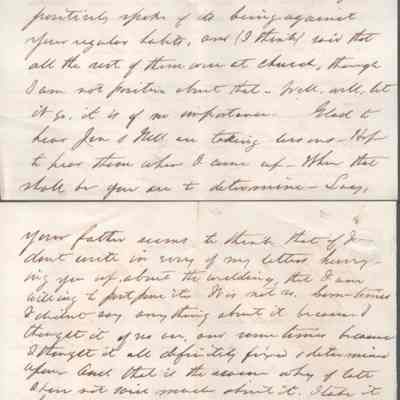 positively spoke of its being against
your regular habits, and (I think) said that
all the rest of them were at church, though
I am not positive about that - Well, well, let
it go, it is of no importance. Glad to
hear Jen & Nell are taking lessons - Hope
to hear them when I come up - When that
shall be you are to determine -
your father seems to think that if I
don't write in every of my letters hurry-
ing you up, about the wedding, that I am
willing to postpone it. It is not so. Sometimes
I didnt say anything about it because I
thought it of no use, and sometimes because
I thought it all definitely fixed & determined
upon and that is the reason why of late
I have not said much about it. I take it